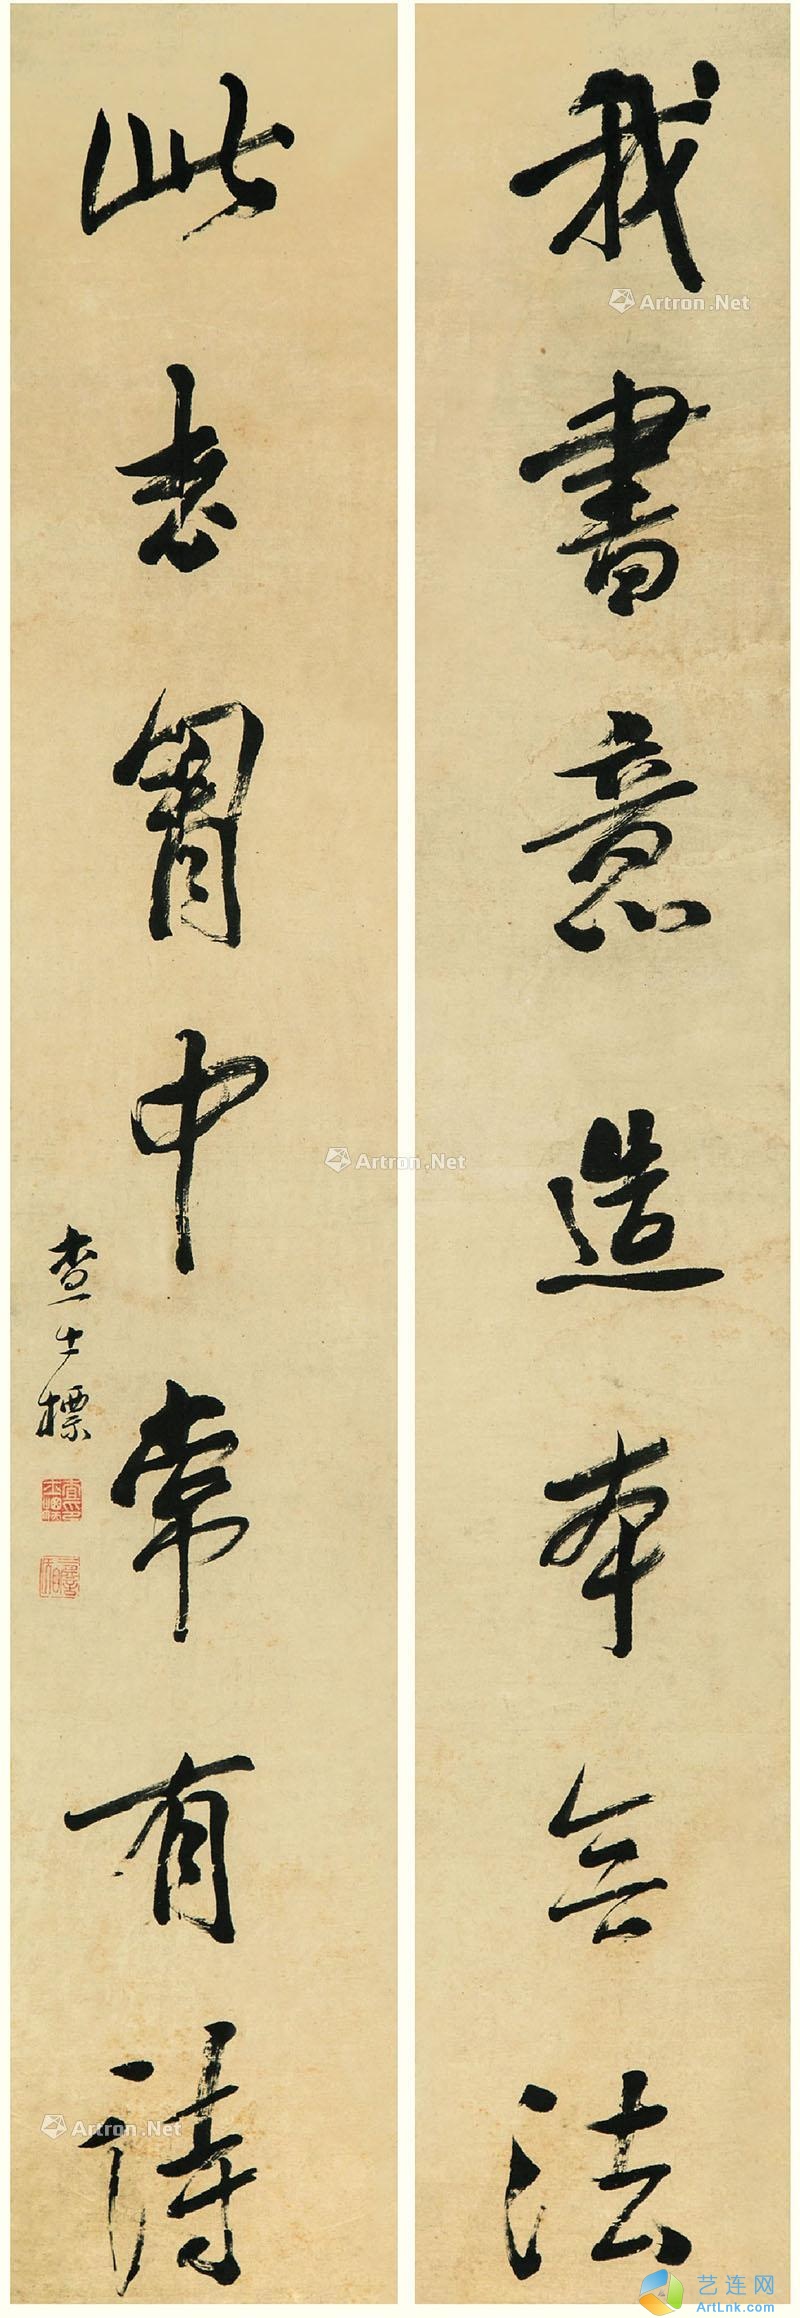 我書意造本無法
此老胷中常有詩
查士標
Artron.Net
Artron.Net
Artron.Net
艺连网
ArtLnk.com